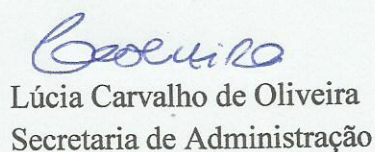 Lúcia Carvalho de Oliveira
Secretaria de Administração